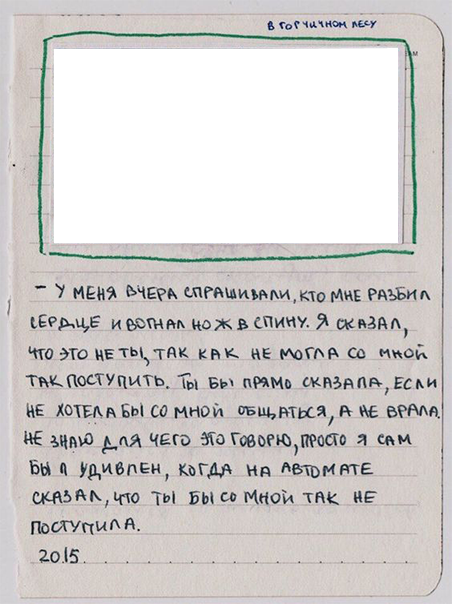 В ГОРЧИЧНОМ ЛЕСУ
– У МЕНЯ ВЧЕРА СПРАШИВАЛИ, КТО МНЕ РАЗБИЛ
СЕРДЦЕ И ВОГНАЛ НОЖ В СПИНУ. Я СКАЗАЛ,
ЧТО ЭТО НЕ ТЫ, ТАК КАК НЕ МОГЛА СО МНОЙ
ТАК ПОСТУПИТЬ. ТЫ БЫ ПРЯМО СКАЗАЛА, ЕСЛИ
НЕ ХОТЕЛА БЫ СО МНОЙ ОБЩАТЬСЯ, А НЕ ВРАЛА.
НЕ ЗНАЮ ДЛЯ ЧЕГО ЭТО ГОВОРЮ, ПРОСТО Я САМ
БЫЛ УДИВЛЕН, КОГДА НА АВТОМАТЕ
СКАЗАЛ, ЧТО ТЫ БЫ СО МНОЙ ТАК НЕ
ПОСТУПИЛА.
2015